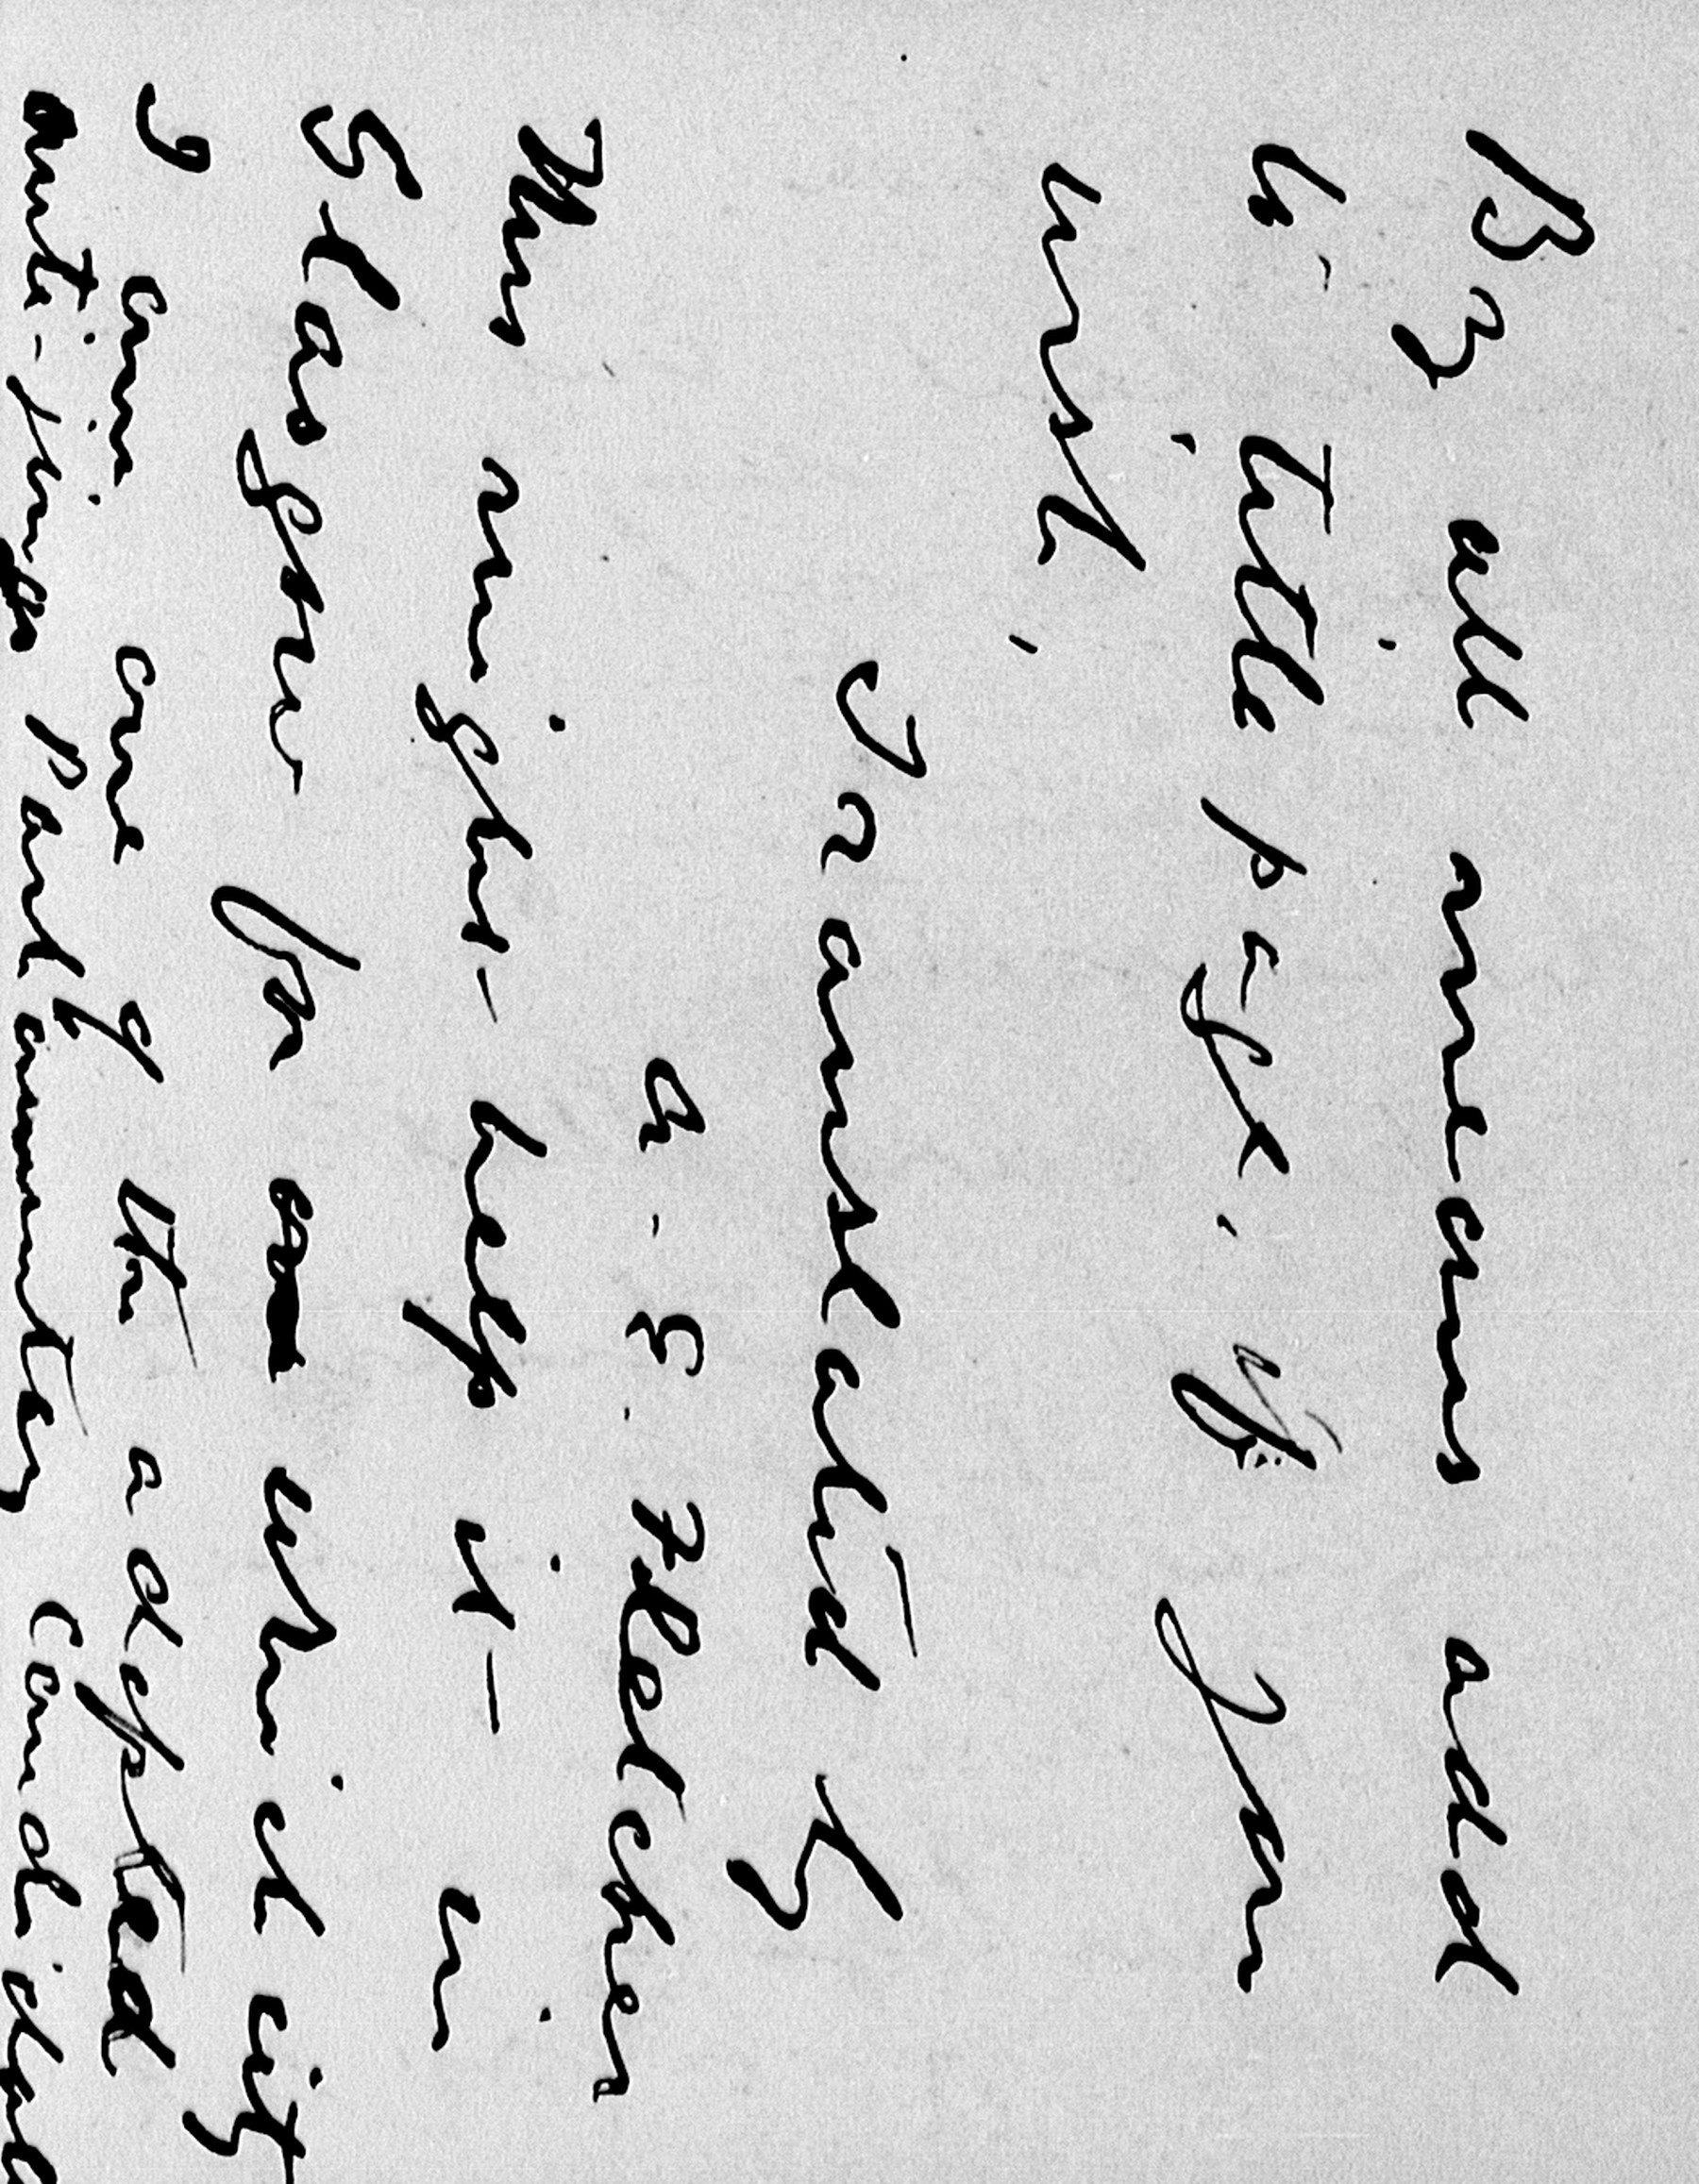 By all means add
to title page, if you
wish,
Translated by
A. E. Fletcher
This might help it in
Glasgow for which city
I am one of the adopted
anti-jingo Parliamentary Candidates